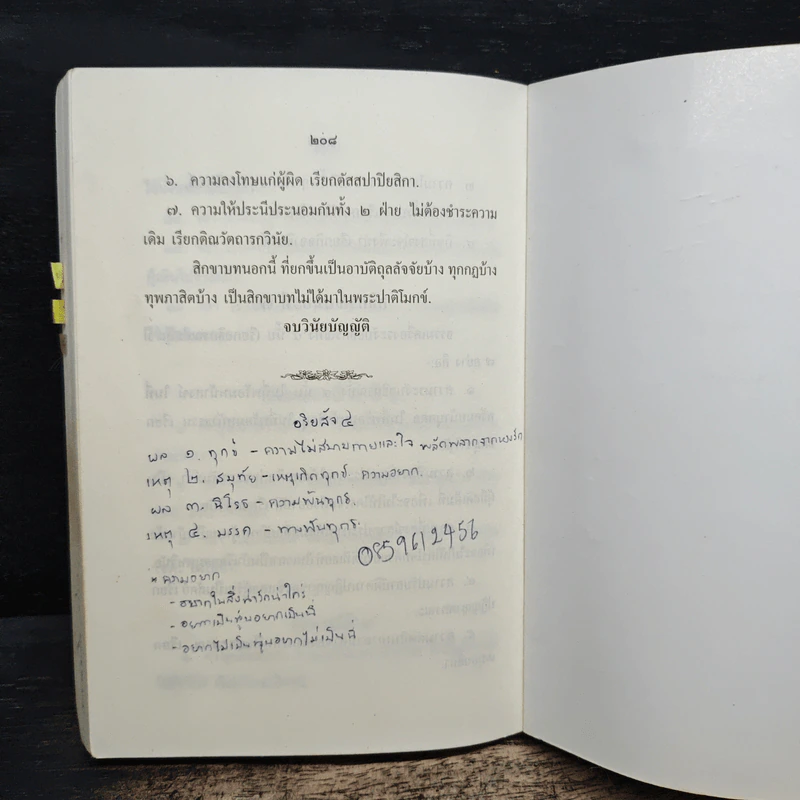 ๒๐๘
๖. ความลงโทษแก่ผู้ผิด เรียกตัสสปาปิยสิกา.
๗. ความให้ประนีประนอมกันทั้ง ๒ ฝ่าย ไม่ต้องชำระความ
เดิม เรียกติณวัตถารกวินัย.
สิกขาบทนอกนี้ ที่ยกขึ้นเป็นอาบัติถุลลัจจัยบ้าง ทุกกฏบ้าง
ทุพภาสิตบ้าง เป็นสิกขาบทไม่ได้มาในพระปาติโมกข์.
จบวินัยบัญญัติ
อริยสัจ ๔
ผล ๑. ทุกข์ - ความไม่สบายกายและใจ พลัดพลากจากของรัก
เหตุ ๒. สมุทัย - เหตุเกิดทุกข์ ความอยาก.
ผล ๓. นิโรธ - ความพ้นทุกข์.
เหตุ ๔. มรรค - ทางพ้นทุกข์.
0859612456
* ความอยาก
- อยากในสิ่งน่ารักน่าใคร่
- อยากเป็นนู่นอยากเป็นนี่
- อยากไม่เป็นนู่นอยากไม่เป็นนี่